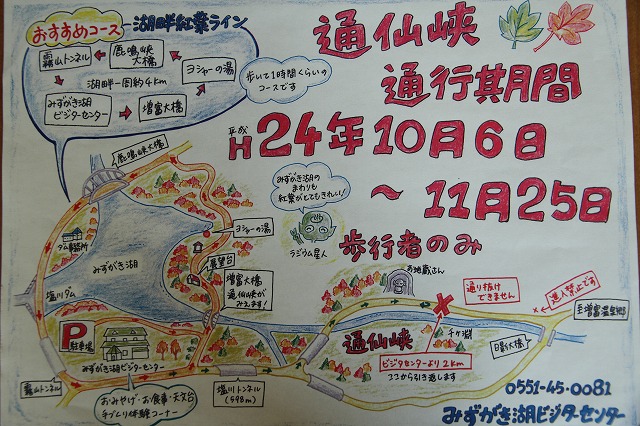 おすすめコース 湖畔紅葉ライン
霧山トンネル
鹿鳴峡大橋
ヨシャーの湯
湖畔一周約4km
みずがき湖
ビジターセンター
増富大橋
歩いて1時間くらいの
コースです
通仙峡
通行期間
平成
H24年10月6日
～11月25日
歩行者のみ
鹿鳴峡大橋
みずがき湖の
まわりも
紅葉がとてもきれい!
ラジウム星人
ヨシャーの湯
ダム事務所
みずがき湖
展望台
増富大橋
通仙峡が
みえます!
塩川ダム
お地蔵さん
通り抜け
できません
進入禁止です
至増富温泉郷
P
駐車場
みずがき湖ビジターセンター
通仙峡
千が淵
日影大橋
ビジタセンターより2km
ここから引き返します
霧山トンネル
おみやげ・お食事・天文台
手づくり体験コーナー
塩川トンネル
(598m)
0551-45-0081
みずがき湖ビジターセンター